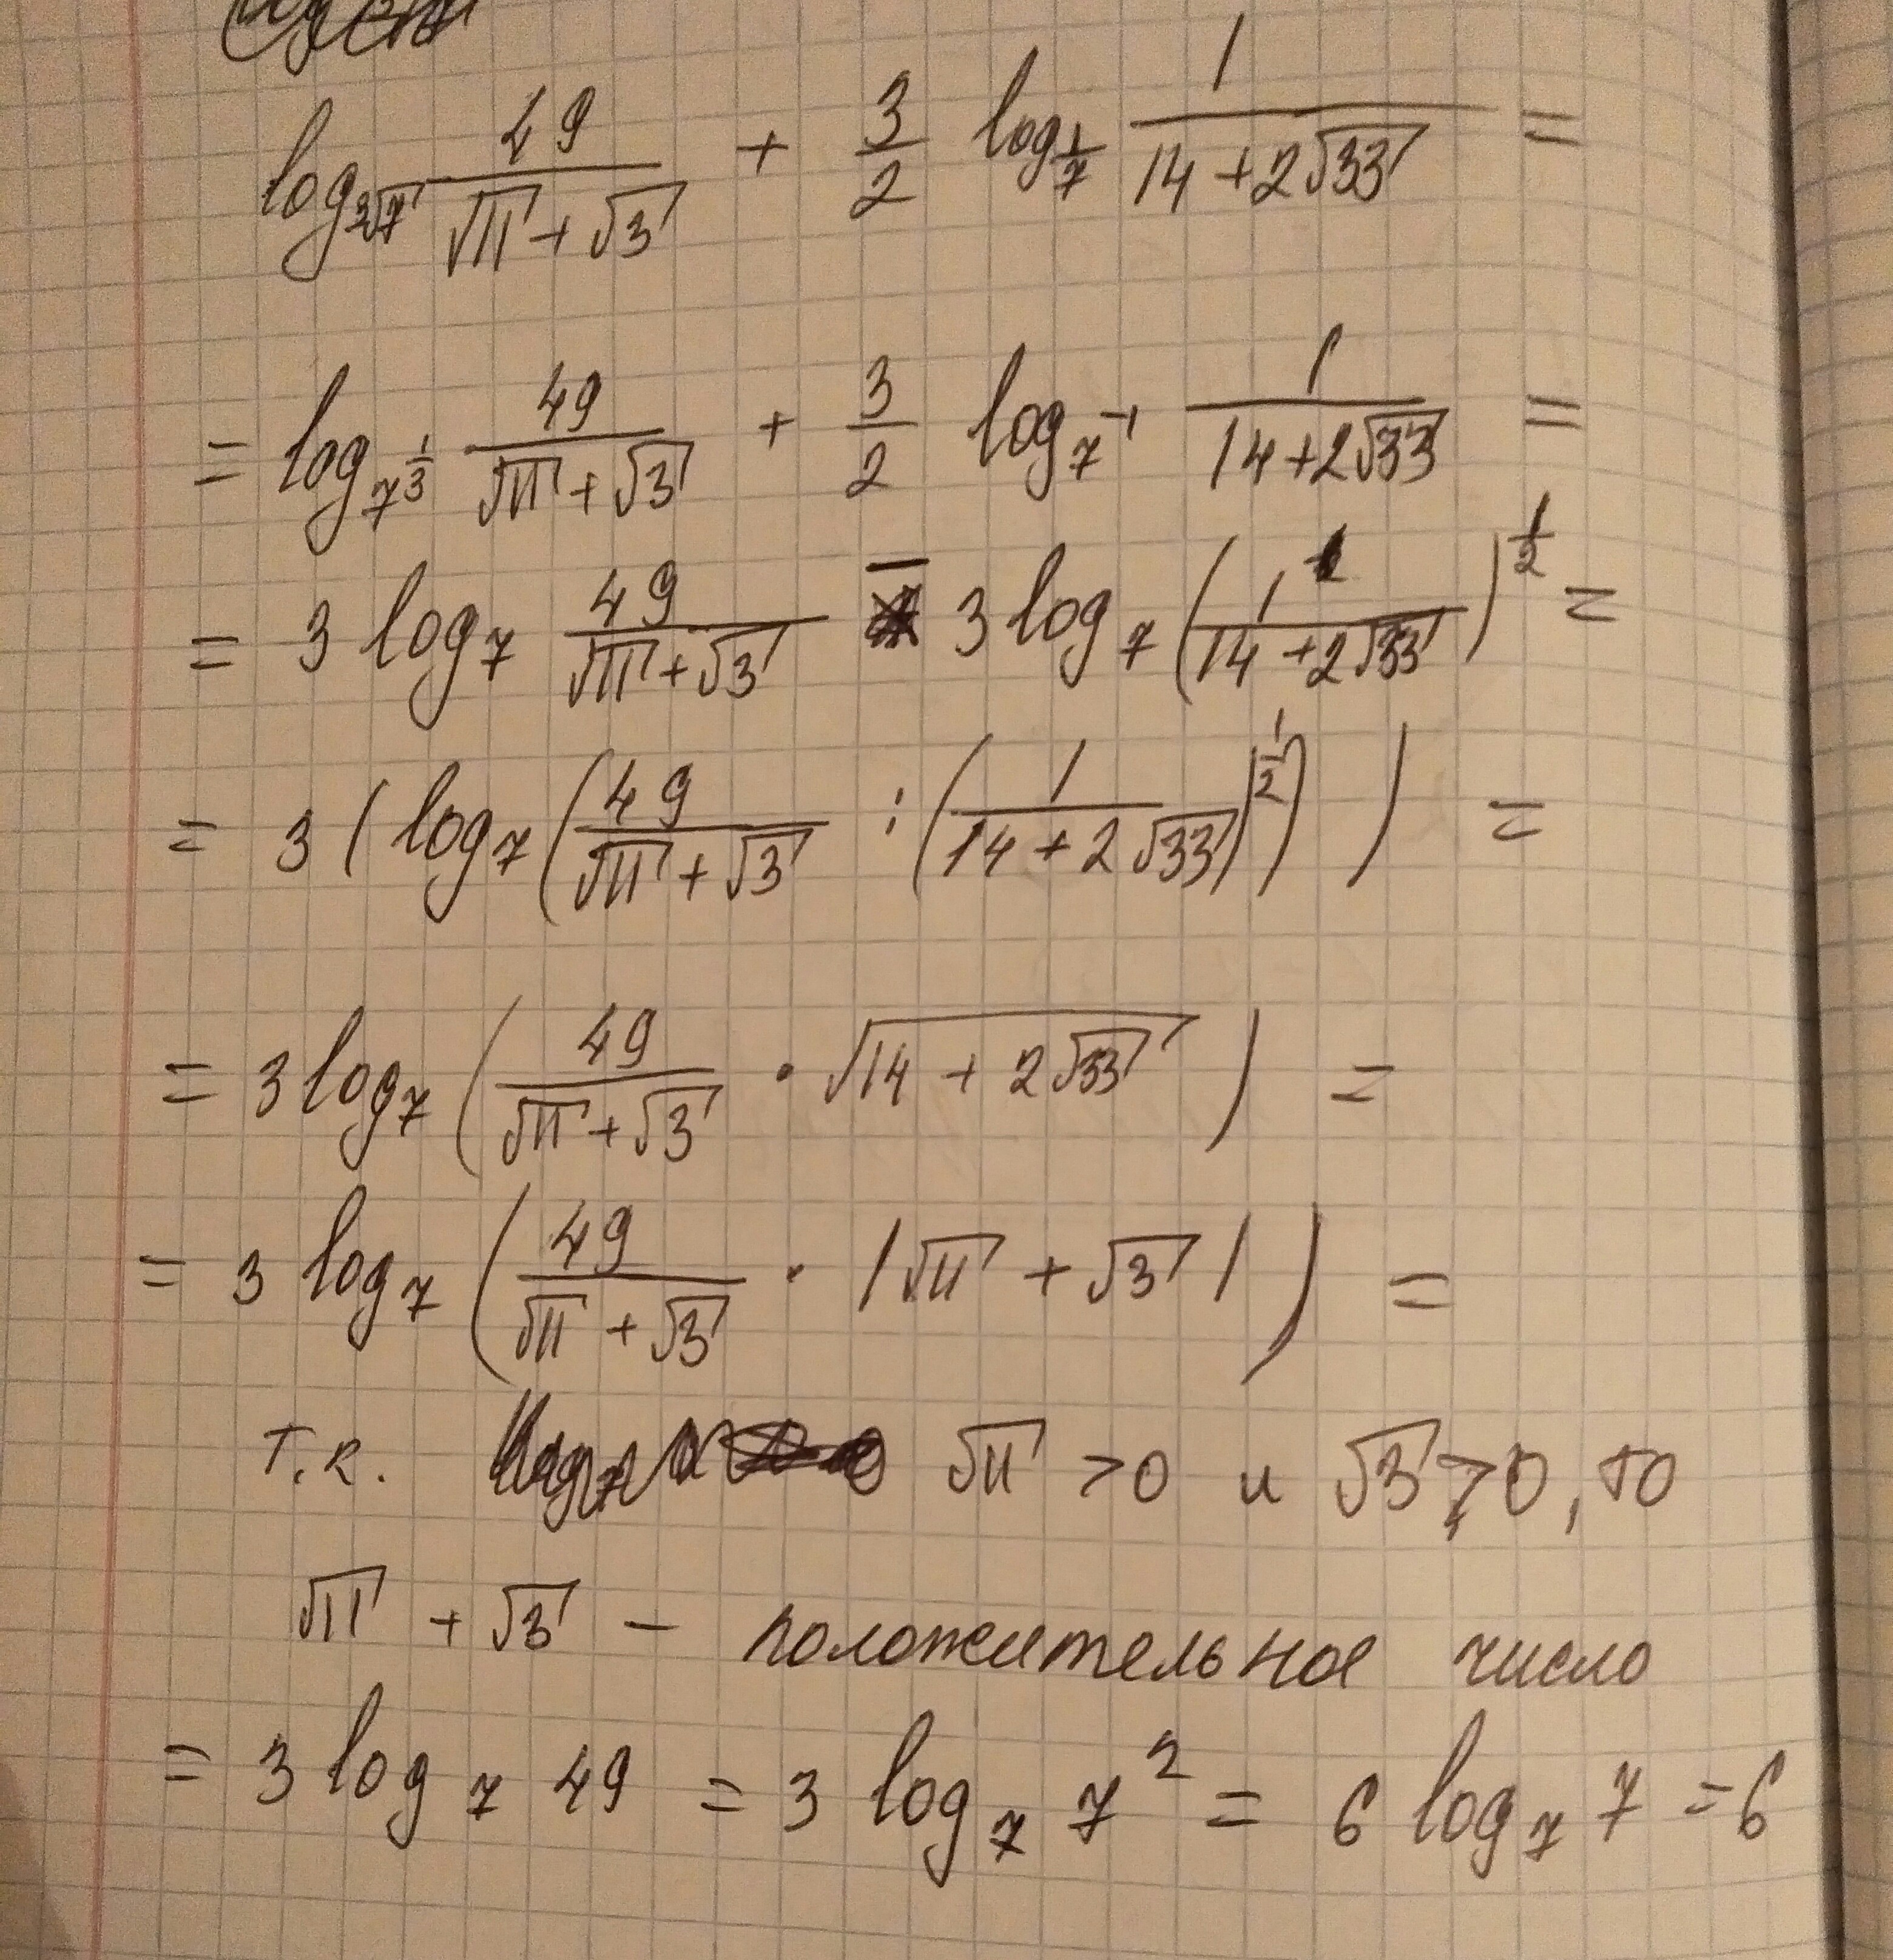 log_{∛7} 49/(√11 + √3) + 3/2 log_{1/7} 1/(14 + 2√33) =
= log_{7^{1/3}} 49/(√11 + √3) + 3/2 log_{7^{-1}} 1/(14 + 2√33) =
= 3 log_7 49/(√11 + √3) - 3 log_7 (1/(14 + 2√33))^{1/2} =
= 3 ( log_7 (49/(√11 + √3) : (1/(14 + 2√33))^{1/2}) ) =
= 3 log_7 (49/(√11 + √3) · √(14 + 2√33)) =
= 3 log_7 (49/(√11 + √3) · |√11 + √3|) =
т.к. √11 > 0 и √3 > 0, то
√11 + √3 - положительное число
= 3 log_7 49 = 3 log_7 7^2 = 6 log_7 7 = 6